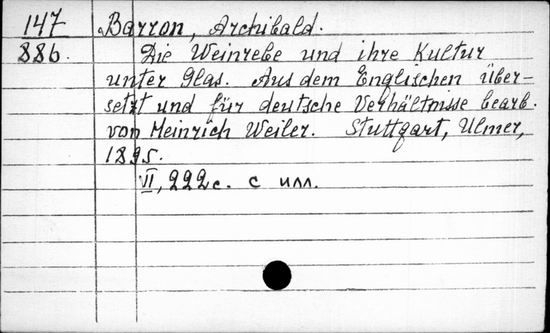 147 Barron, Archibald.
886. Die Weinrebe und ihre Kultur
unter Glas. Aus dem Englischen über-
setzt und für deutsche Verhältnisse bearb.
von Heinrich Weiler. Stuttgart, Ulmer,
1895.
VI, 222 с. с илл.